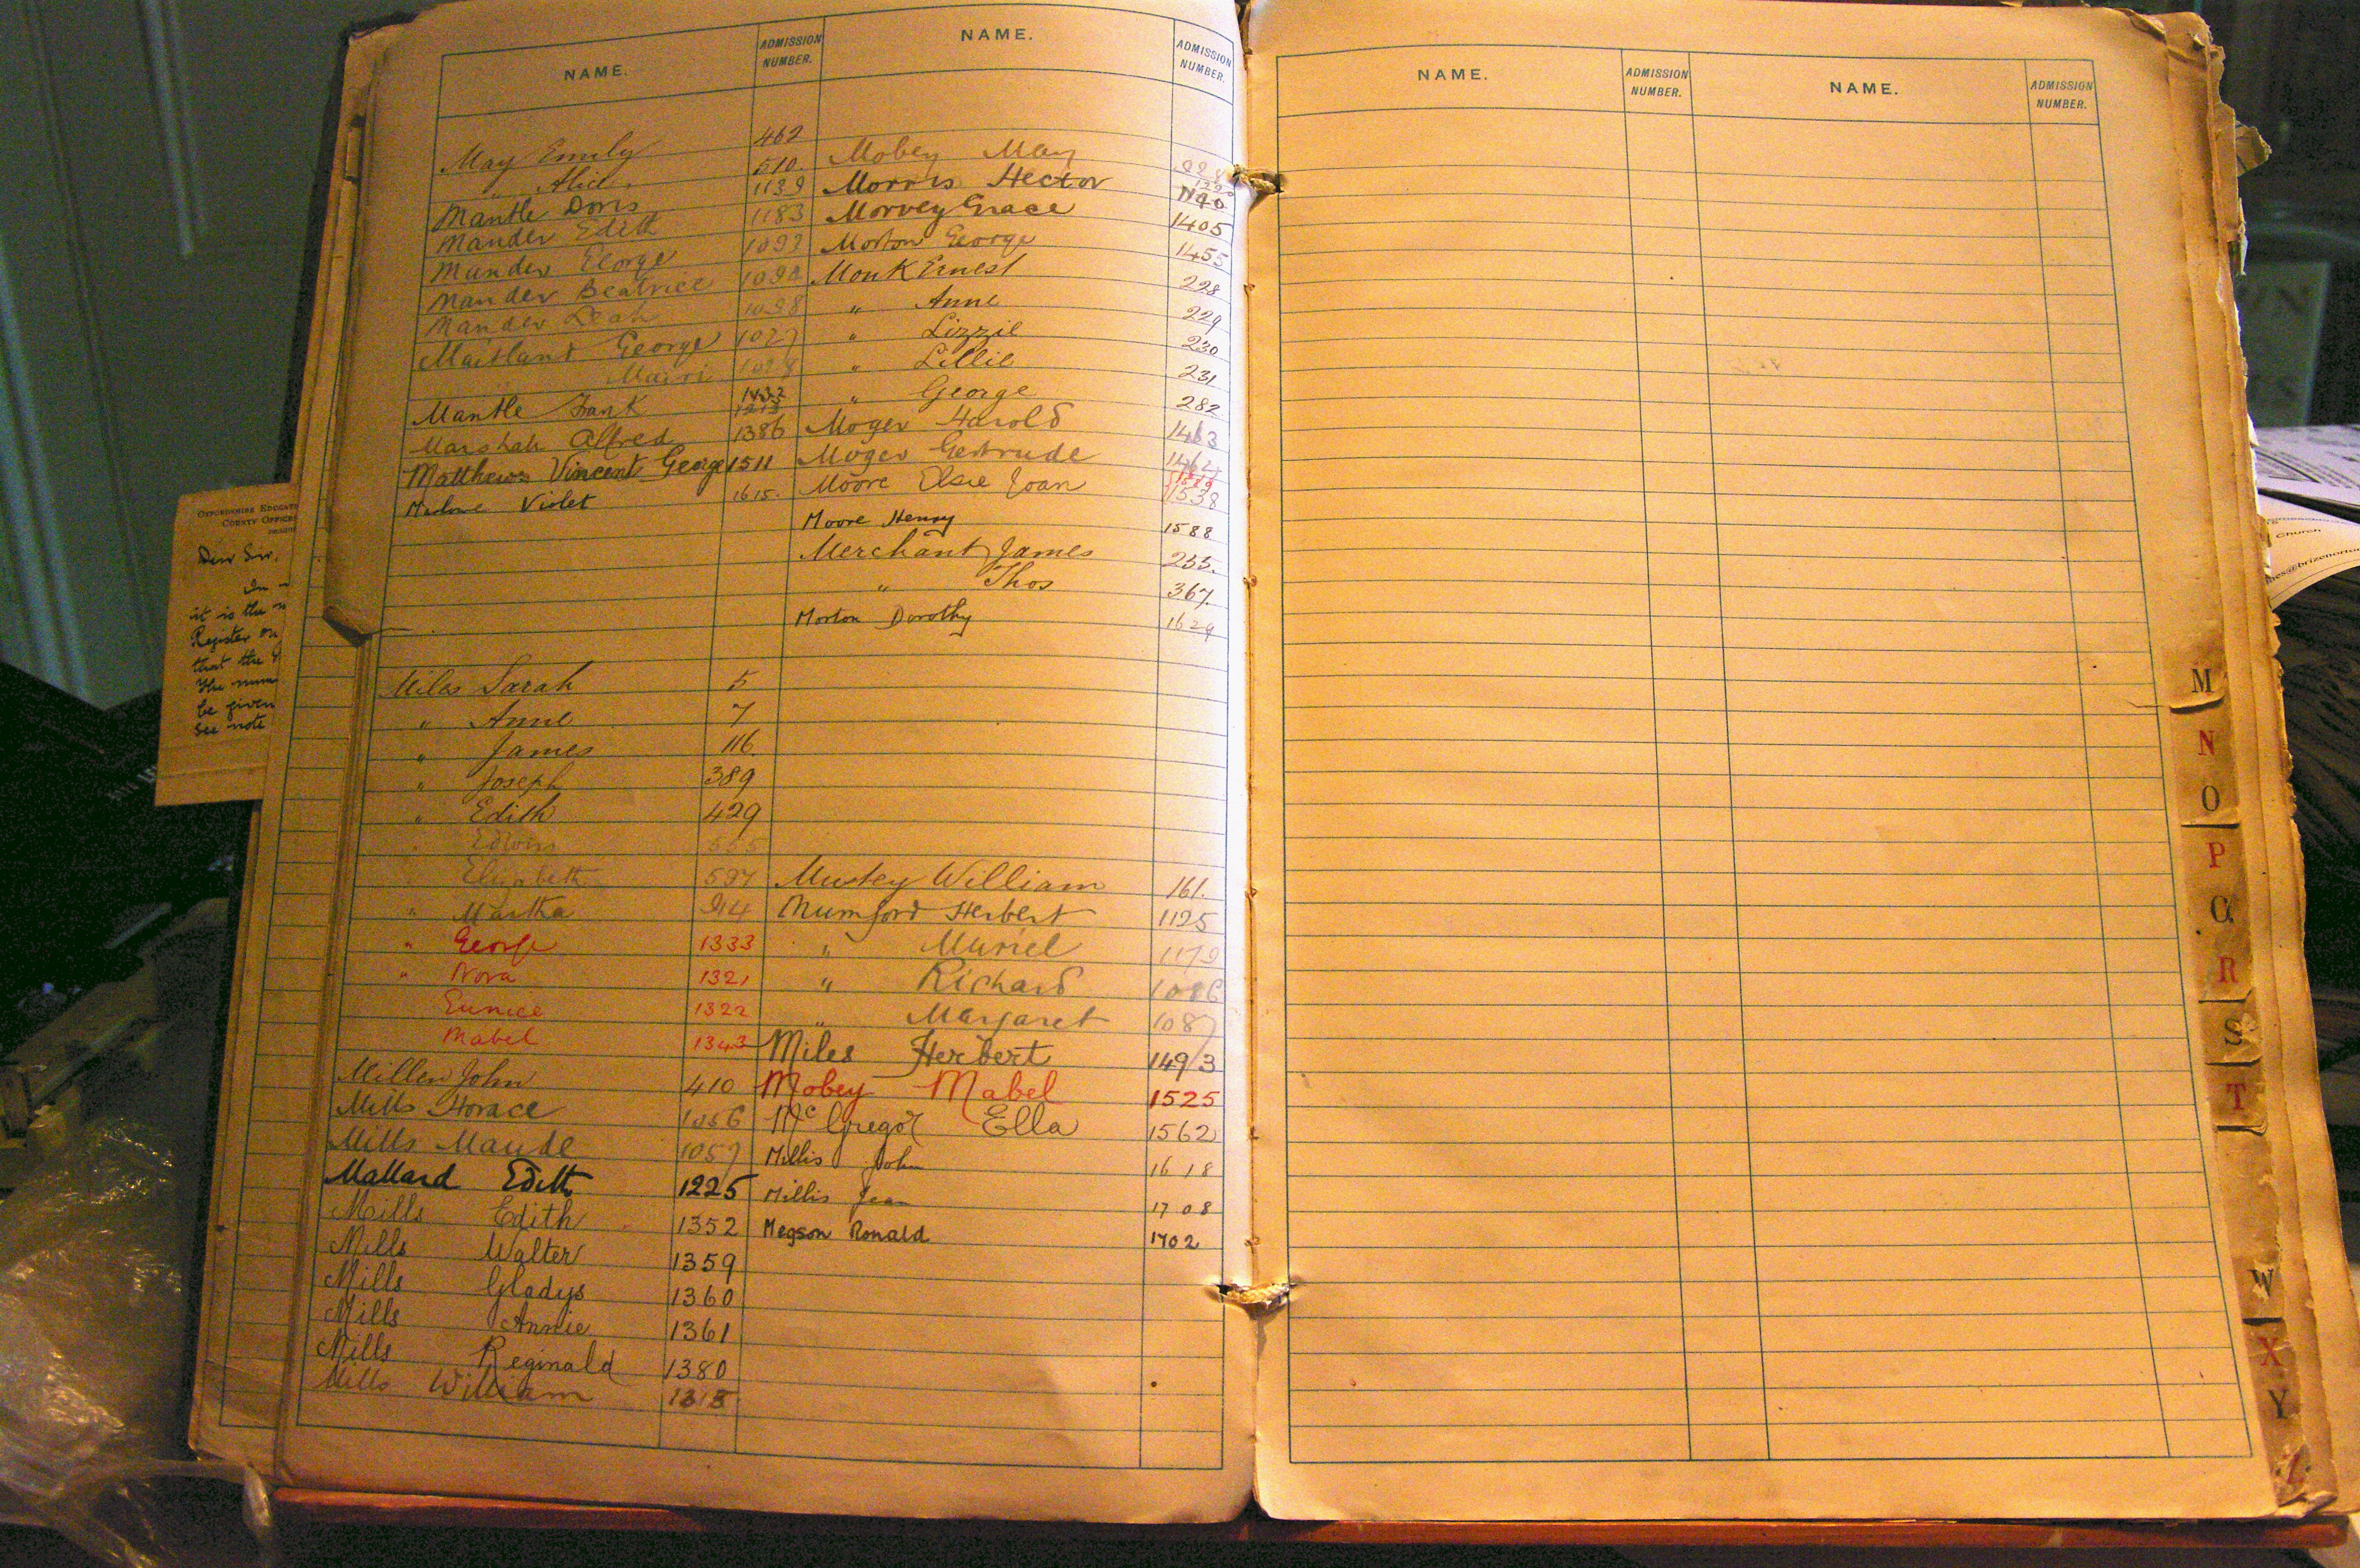 NAME. ADMISSION NUMBER. NAME. ADMISSION NUMBER.
May Emily 462
" Alice 510.
Mantle Doris 1139
Mander Edith 1183
Mander George 1097
Mander Beatrice 1098
Mander Leah
Maitland George 1027
Mairi 1028
Mantle Frank 1432
Marshall Alfred 1386
Matthews Vincent George 1511
Violet 1615.
Miles Sarah 5
" Anne 7
" James 116
" Joseph 389
" Edith 429
" Edwin 555
" Elizabeth 597
" Martha 914
" George 1333
" Nora 1321
Eunice 1322
Mabel 1343
Miller John 410
Mills Horace 1056
Mills Maude 1057
Mallard Edith 1225
Mills Edith 1352
Mills Walter 1359
Mills Gladys 1360
Mills Annie 1361
Mills Reginald 1380
Mills William 1315
Mobey May
Morris Hector
Morvey Grace 1405
Morton George 1455
Monk Ernest 228
" Anne 229
" Lizzie 230
" Lillie 231
" George 282
Moger Harold 1463
Moger Gertrude 1464
Moore Elsie Joan 1538
Moore Henry 1588
Merchant James 255.
" Thos 367.
Morton Dorothy 1629
Mustey William 161.
Mumford Herbert 1125
" Muriel 1179
" Richard 1086
" Margaret 1087
Miles Herbert 1493
Mobey Mabel 1525
McGregor Ella 1562
Millis John 1618
Millis Jean 1708
Megson Ronald 1702
NAME. ADMISSION NUMBER. NAME. ADMISSION NUMBER.
M
N
O
P
Q
R
S
T
W
X
Y
Z
COUNTY OFFICES
Dear Sir,
In
it is the
Register on
that the
The num
be given
see note
Church